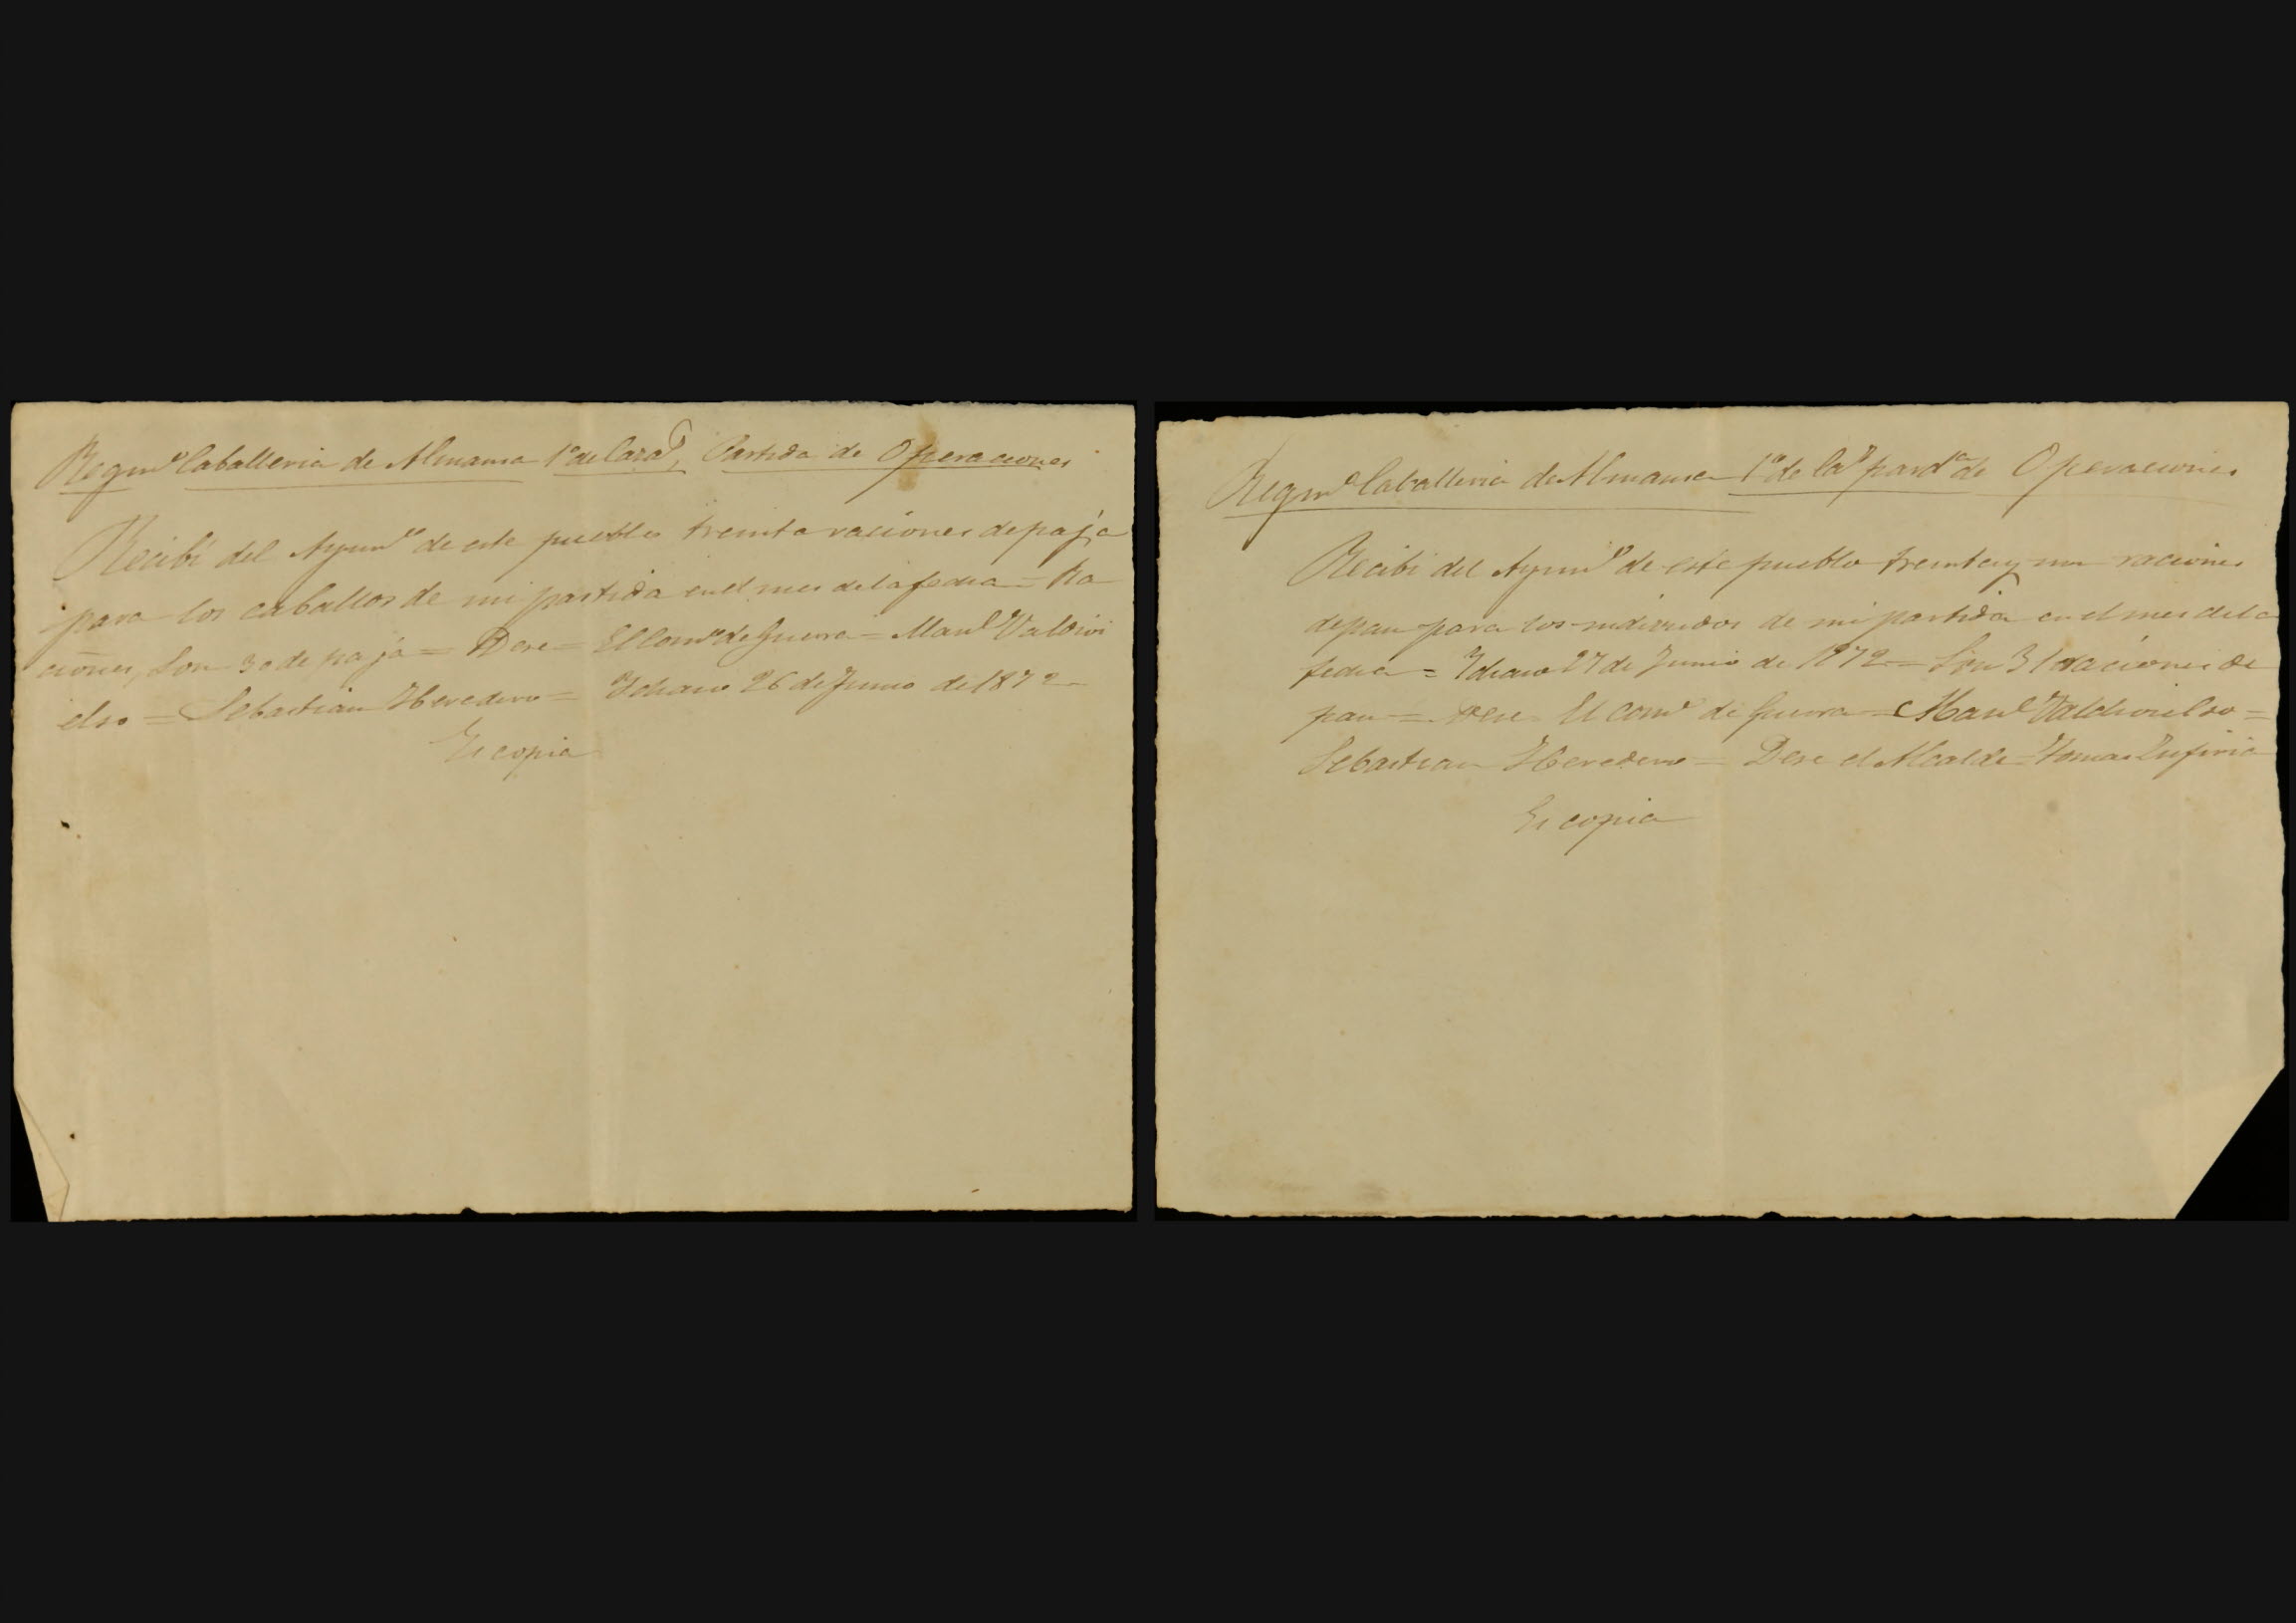 Regmto Caballeria de Almansa 1º de Cazas, Partida de Operaciones
Recibi del Ayunto de este pueblo treinta raciones de paja
para los caballos de mi partida en el mes de la fecha = Ra
ciones, Son 30 de paja = Dese = El Como de Guerra = Manl Valdivi
elso = Sebastian Heredero = Ichaso 26 de Junio de 1872 -
Es copia
Regmto Caballeria de Almansa 1º de Cas pardª de Operaciones
Recibi del Ayunto de este pueblo treinta y una raciones
de pan para los individuos de mi partida en el mes de la
fecha = Ichaso 27 de Junio de 1872 = Son 31 raciones de
pan = Dese El Como de Guerra = Manl Valdivielso =
Sebastian Heredero = Dese el Alcalde = Tomas
Es copia